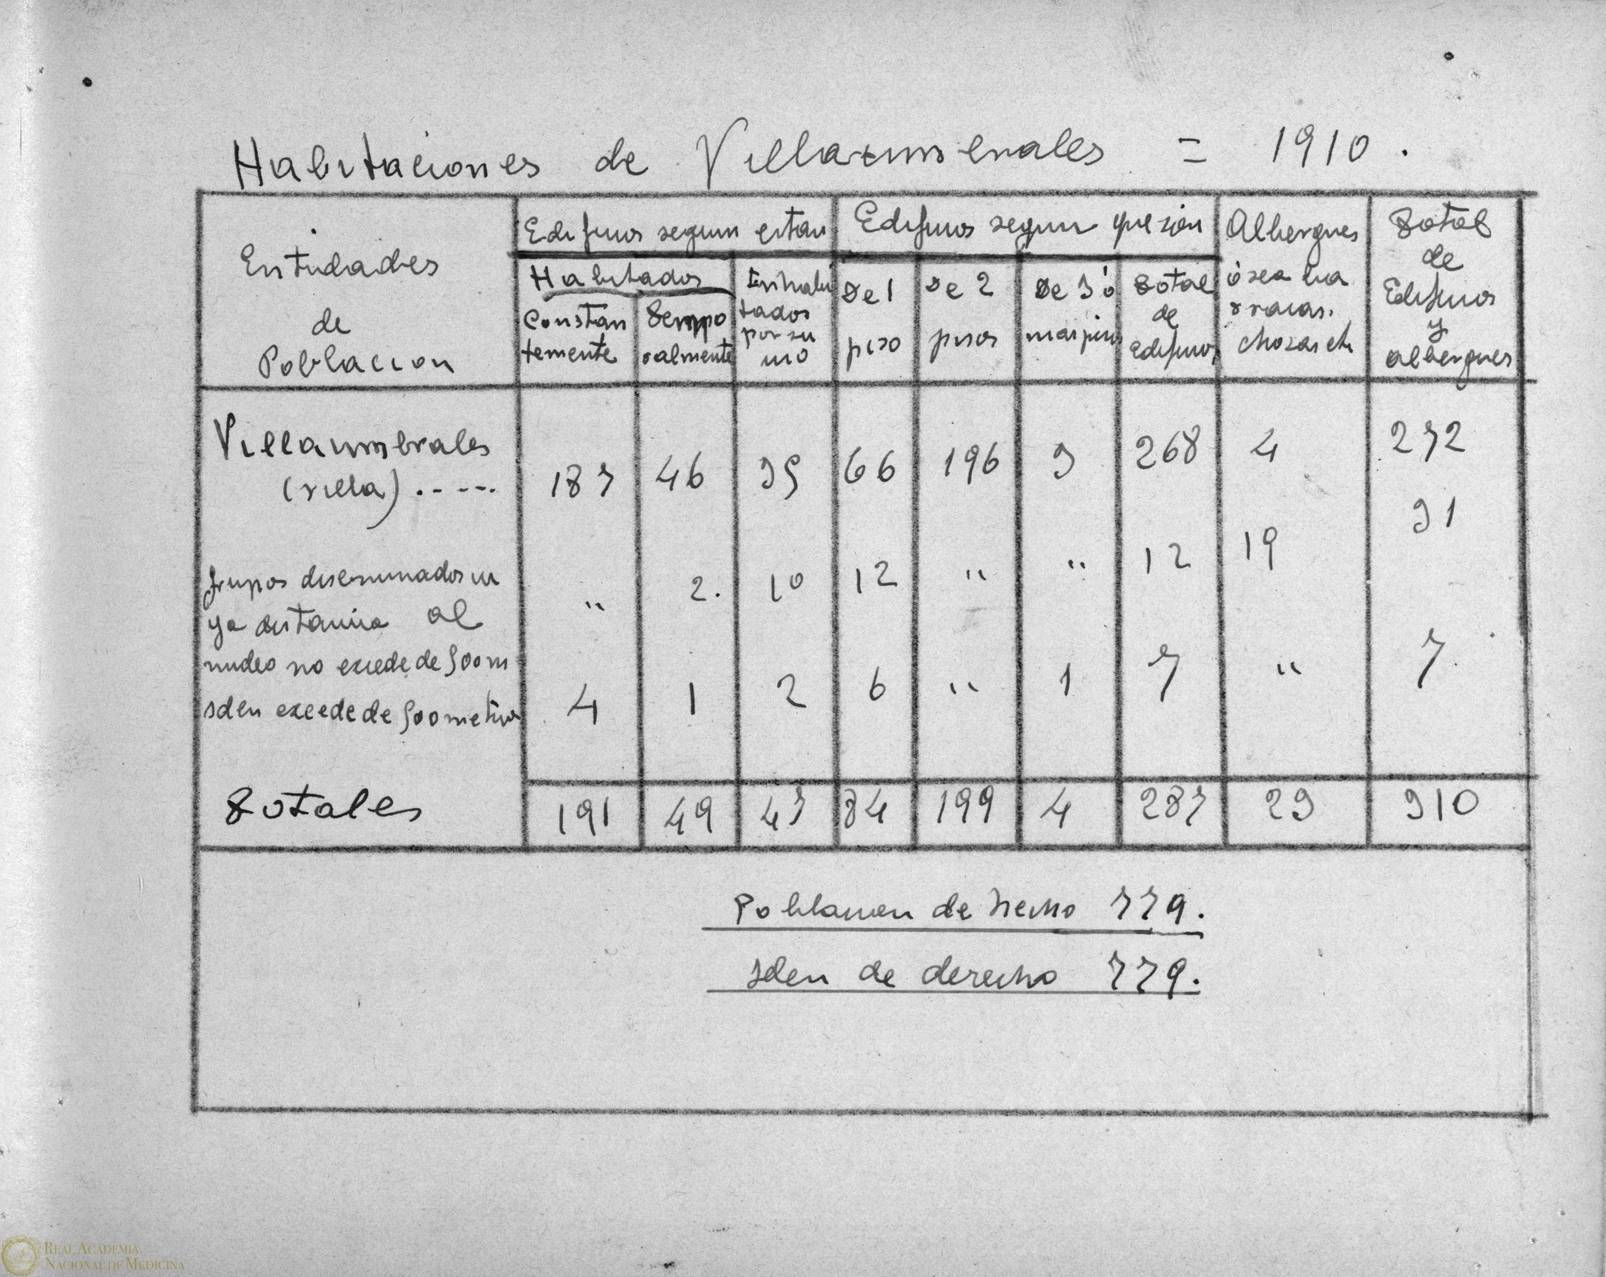 Habitaciones de Villaumbrales = 1910.
Entidades
de
Poblacion
Edificios segun estan
Edificios segun que son
Albergues
ó sea ba
rracas.
chozas etc
Total
de
Edificios
y
albergues
Habitados
Constan
temente
Tempo
ralmente
Inhabi
tados
por su
uso
De 1
piso
De 2
pisos
De 3 ó
mas pisos
Total
de
Edificios
Villaumbrales
(villa) ..... 187 46 35 66 196 3 268 4 272
grupos diseminados cu
ya distancia al
nucleo no excede de 500 m " 2. 10 12 " " 12 19 31
Iden excede de 500 metros 4 1 2 6 " 1 7 " 7.
Totales 191 49 47 84 199 4 287 23 310
Poblacion de hecho 779.
Iden de derecho 779.
REAL ACADEMIA
NACIONAL DE MEDICINA